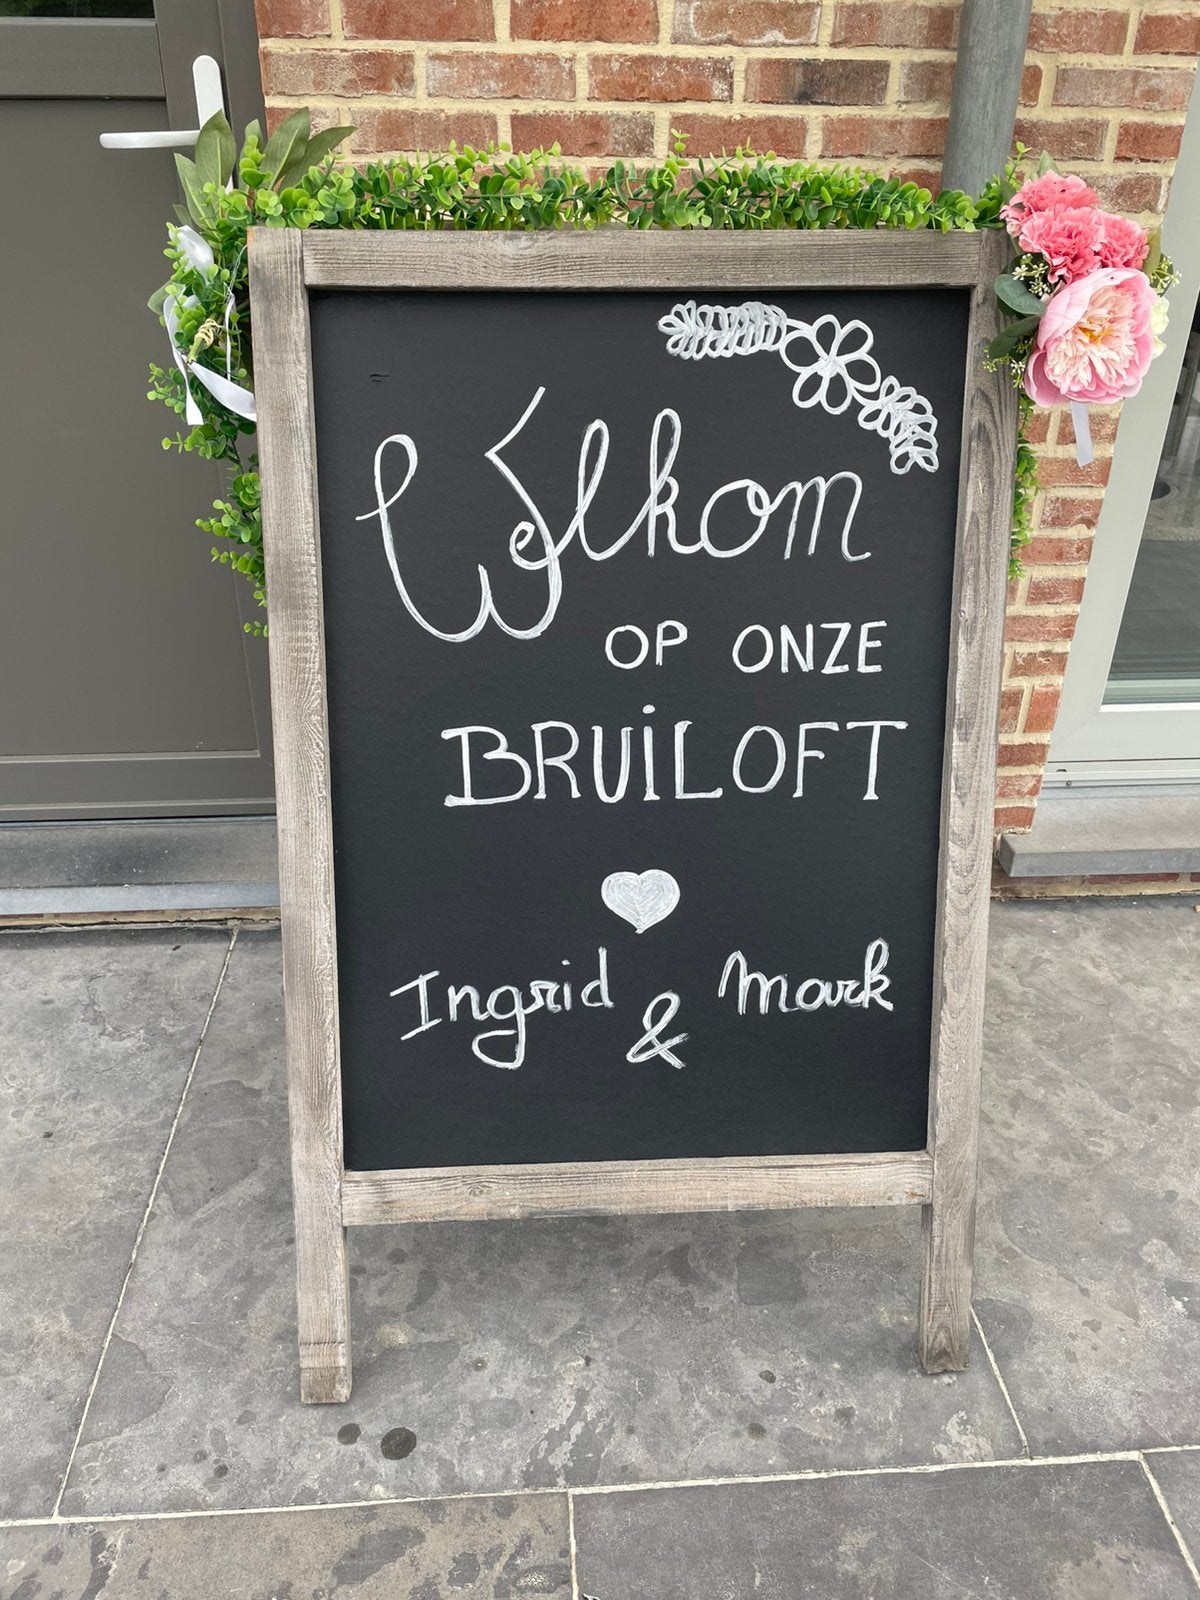 Welkom
OP ONZE
BRUiLOFT
Ingrid & Mark